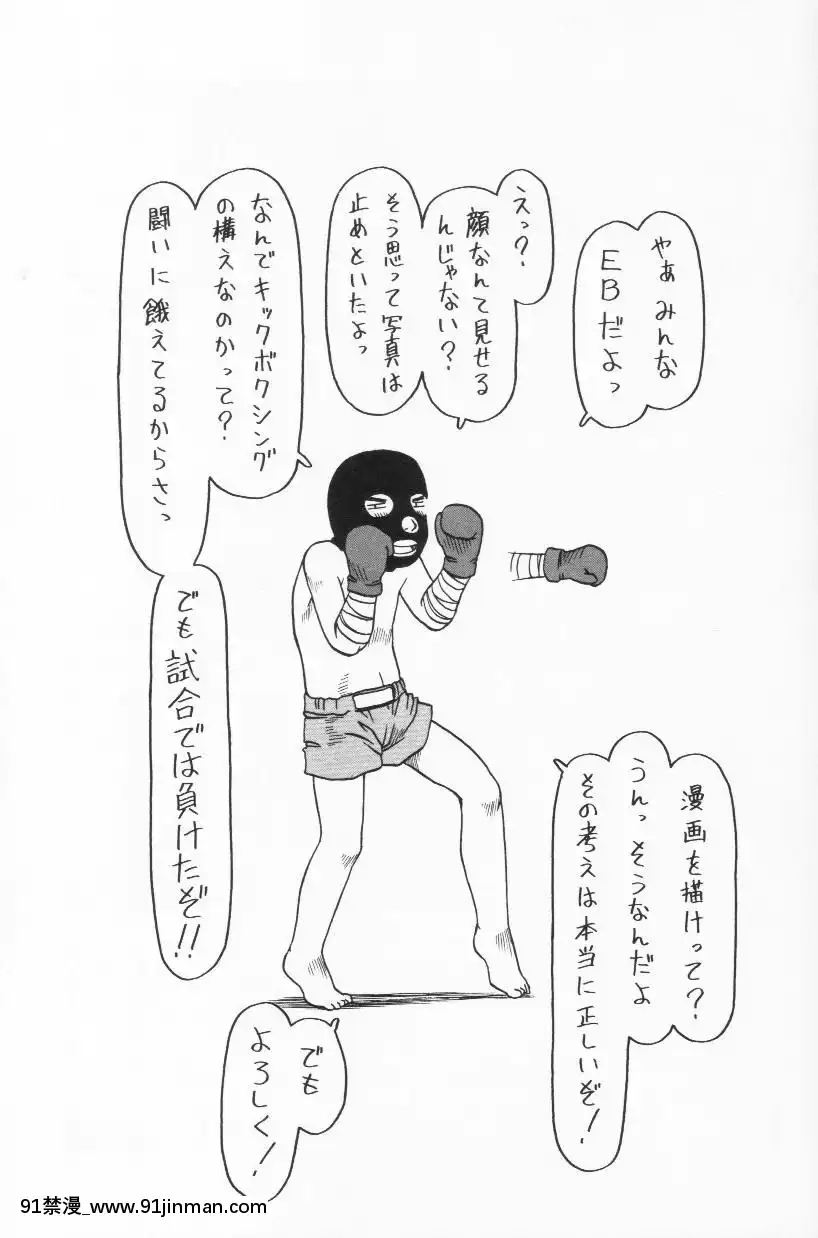 やぁ みんな
EBだよっ
えっ?
顔なんて見せる
んじゃない?
そう思って写真は
止めといたよっ
なんでキックボクシング
の構えなのかって?
闘いに餓えてるからさっ
でも試合では負けたぞ!!
漫画を描けって?
うんっ そうなんだよ
その考えは本当に正しいぞ!
でも
よろしく!
91禁漫_www.91jinman.com